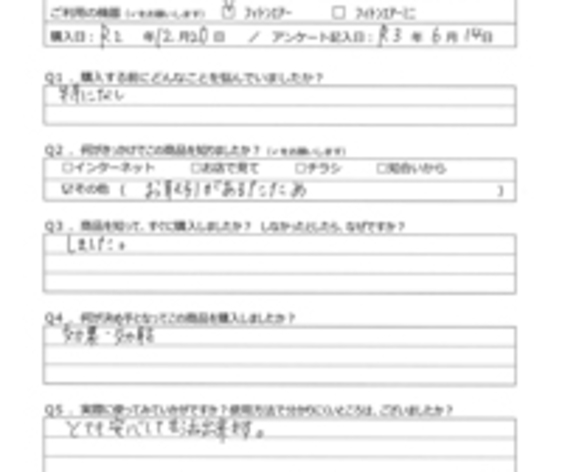 ご利用の機器（✓をお願いします） ☑ フィトンエアー □ フィトンエアーミニ
購入日：R2 年12月20日 ／ アンケート記入日：R3 年 6月 14日
Q1．購入する前にどんなことを悩んでいましたか？
特になし
Q2．何がきっかけでこの商品を知りましたか？（✓をお願いします）
□インターネット □お店で見て □チラシ □知合いから
☑その他（ お取引があるため ）
Q3．商品を知って、すぐに購入しましたか？ しなかったとしたら、なぜですか？
しました。
Q4．何が決め手となってこの商品を購入しましたか？
効果・効能
Q5．実際に使ってみていかがですか？使用方法で分かりにくいところは、ございましたか？
とても安心して